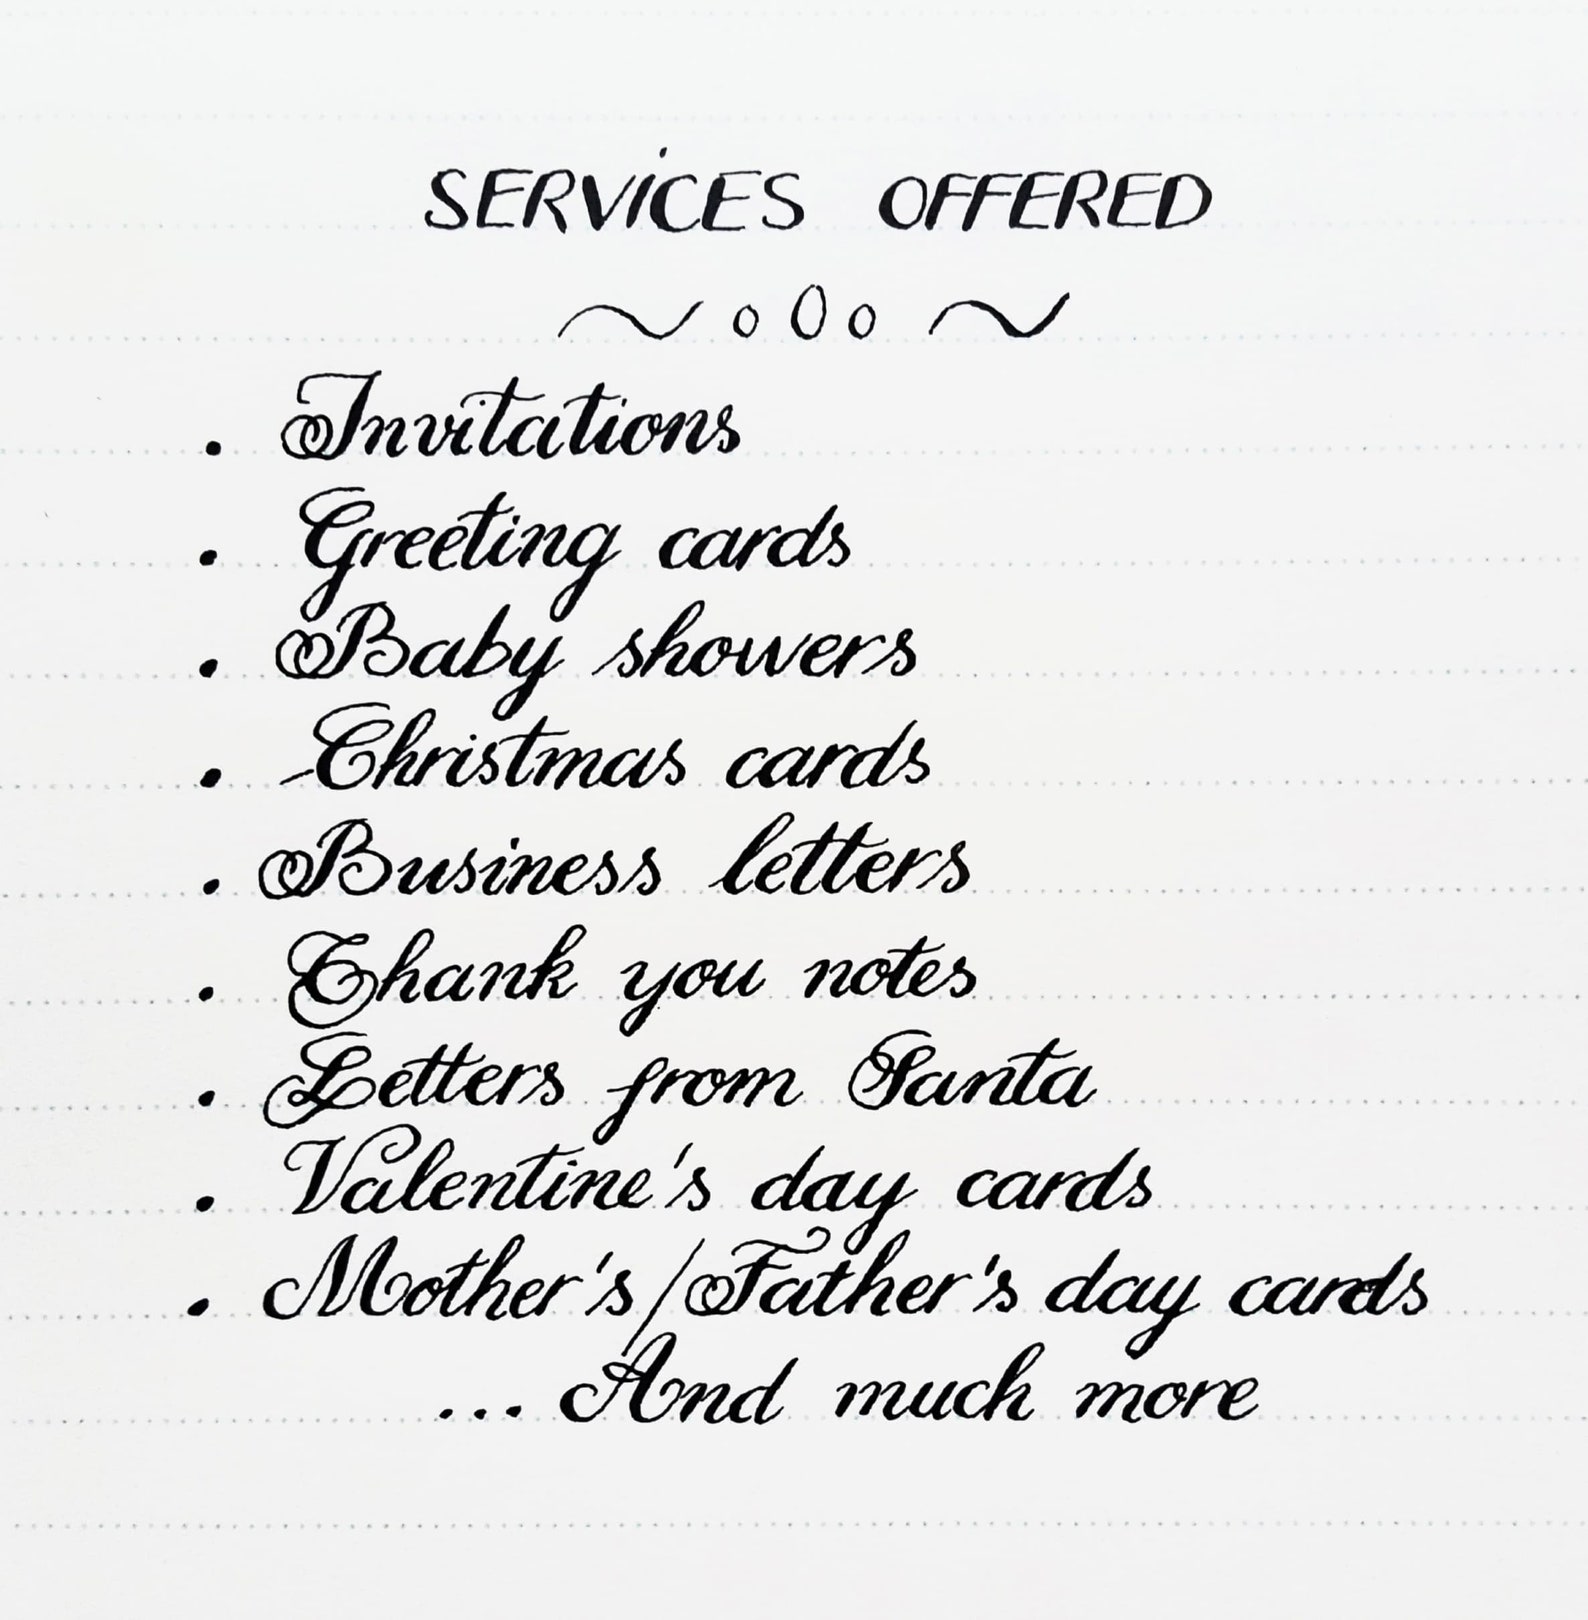 SERVICES OFFERED
. Invitations
. Greeting cards
. Baby showers
. Christmas cards
. Business letters
. Thank you notes
. Letters from Santa
. Valentine's day cards
. Mother's/Father's day cards
... And much more